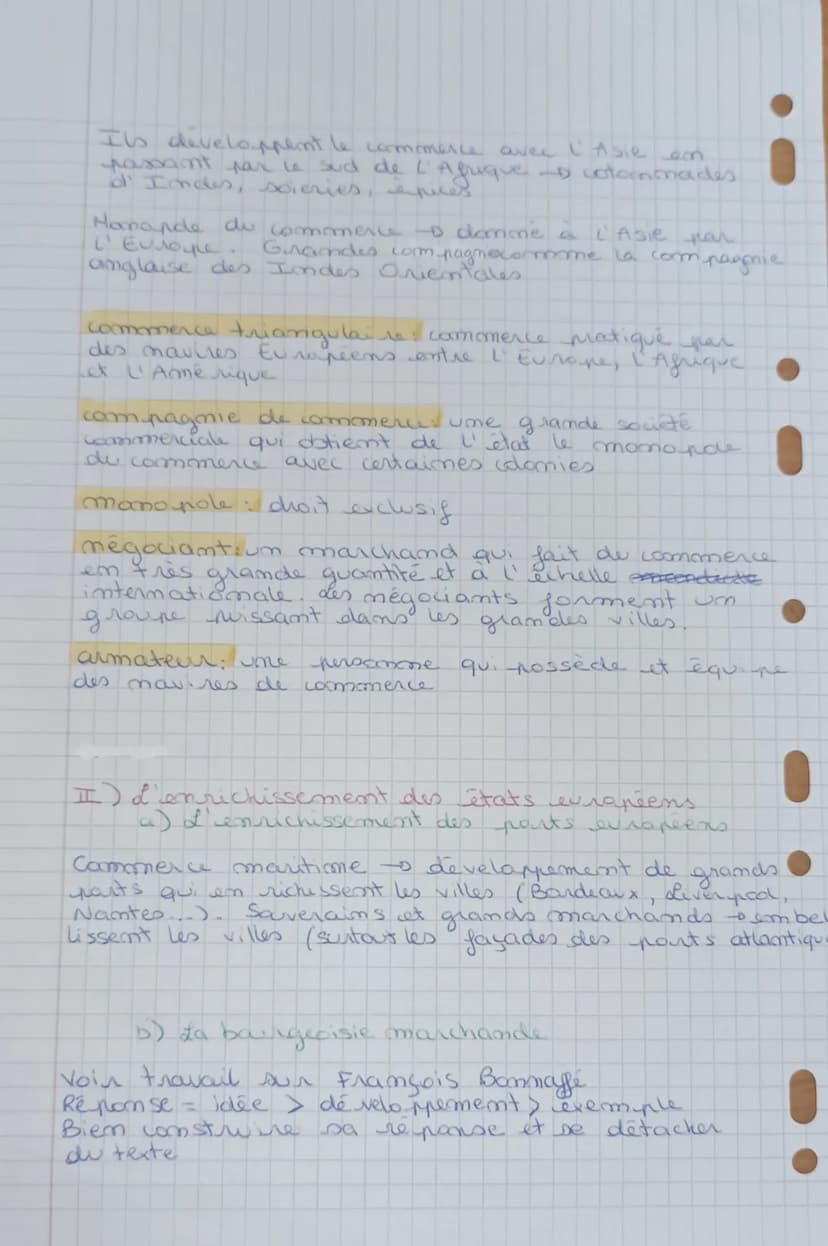 Ils développent le commerce avec l'Asie en
passant par le sud de l'Afrique → cotonnades
d'Indes, soieries, épices
Monopole du commerce → donné à l'Asie par
L'Europe. Grandes compagnes comme la compagnie
anglaise des Indes Orientales
commerce triangulaire : commerce pratiqué par
des navires Européens entre l'Europe, l'Afrique
et l'Amérique
compagnie de commerce : une grande société
commerciale qui obtient de l'état le monopole
du commerce avec certaines colonies
monopole : droit exclusif
négociant : un marchand qui fait du commerce
en très grande quantité et à l'échelle
internationale. Les négociants forment un
groupe puissant dans les grandes villes.
armateur : une personne qui possède et équipe
des navires de commerce
II) L'enrichissement des états européens
a) L'enrichissement des ports européens
Commerce maritime → développement de grands
ports qui enrichissent les villes (Bordeaux, Liverpool,
Nantes...). Souverains et grands marchands → embel
lissent les villes (surtout les façades des ports atlantiqu
b) La bourgeoisie marchande
Voir travail sur François Bonnaffé
Réponse = idée > développement > exemple
Bien construire sa réponse et se détacher
du texte